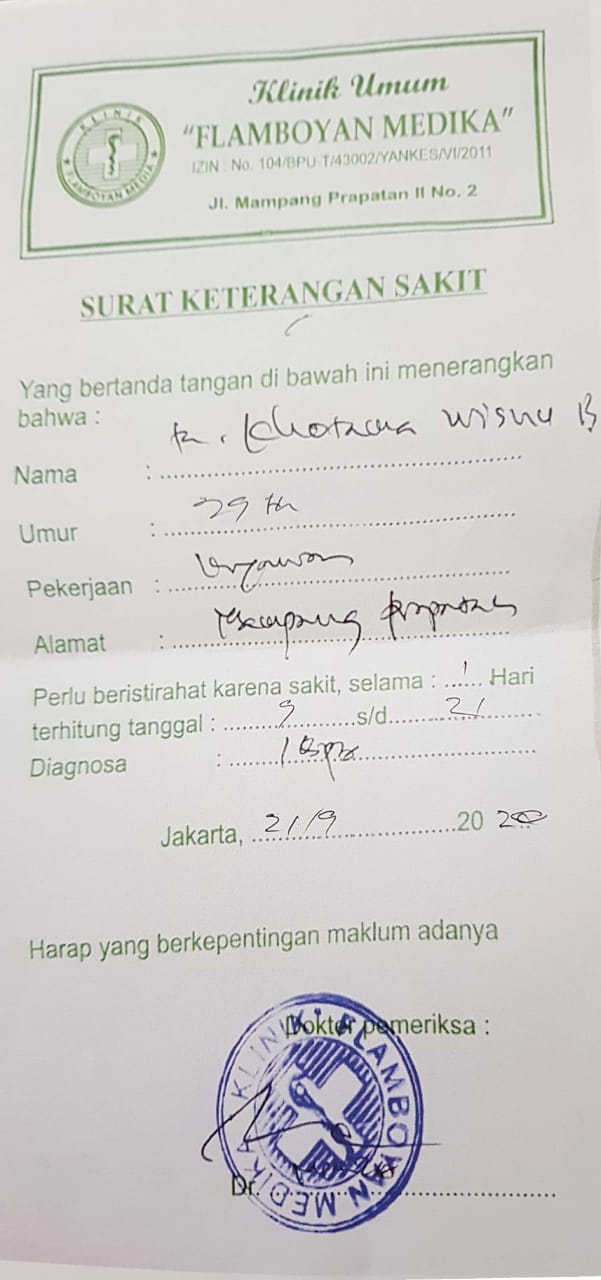 KLINIK
FLAMBOYAN MEDIA
Klinik Umum
"FLAMBOYAN MEDIKA"
IZIN : No. 104/BPU-T/43002/YANKES/VI/2011
Jl. Mampang Prapatan II No. 2
SURAT KETERANGAN SAKIT
Yang bertanda tangan di bawah ini menerangkan
bahwa :
Nama : Wisnu B
Umur : 29 th
Pekerjaan :
Alamat : Mampang Prapatan
Perlu beristirahat karena sakit, selama : 1 Hari
terhitung tanggal : 9 s/d 21
Diagnosa :
Jakarta, 21/9 20 20
Harap yang berkepentingan maklum adanya
Dokter pemeriksa :
KLINIK FLAMBOYAN MEDIKA
Dr.